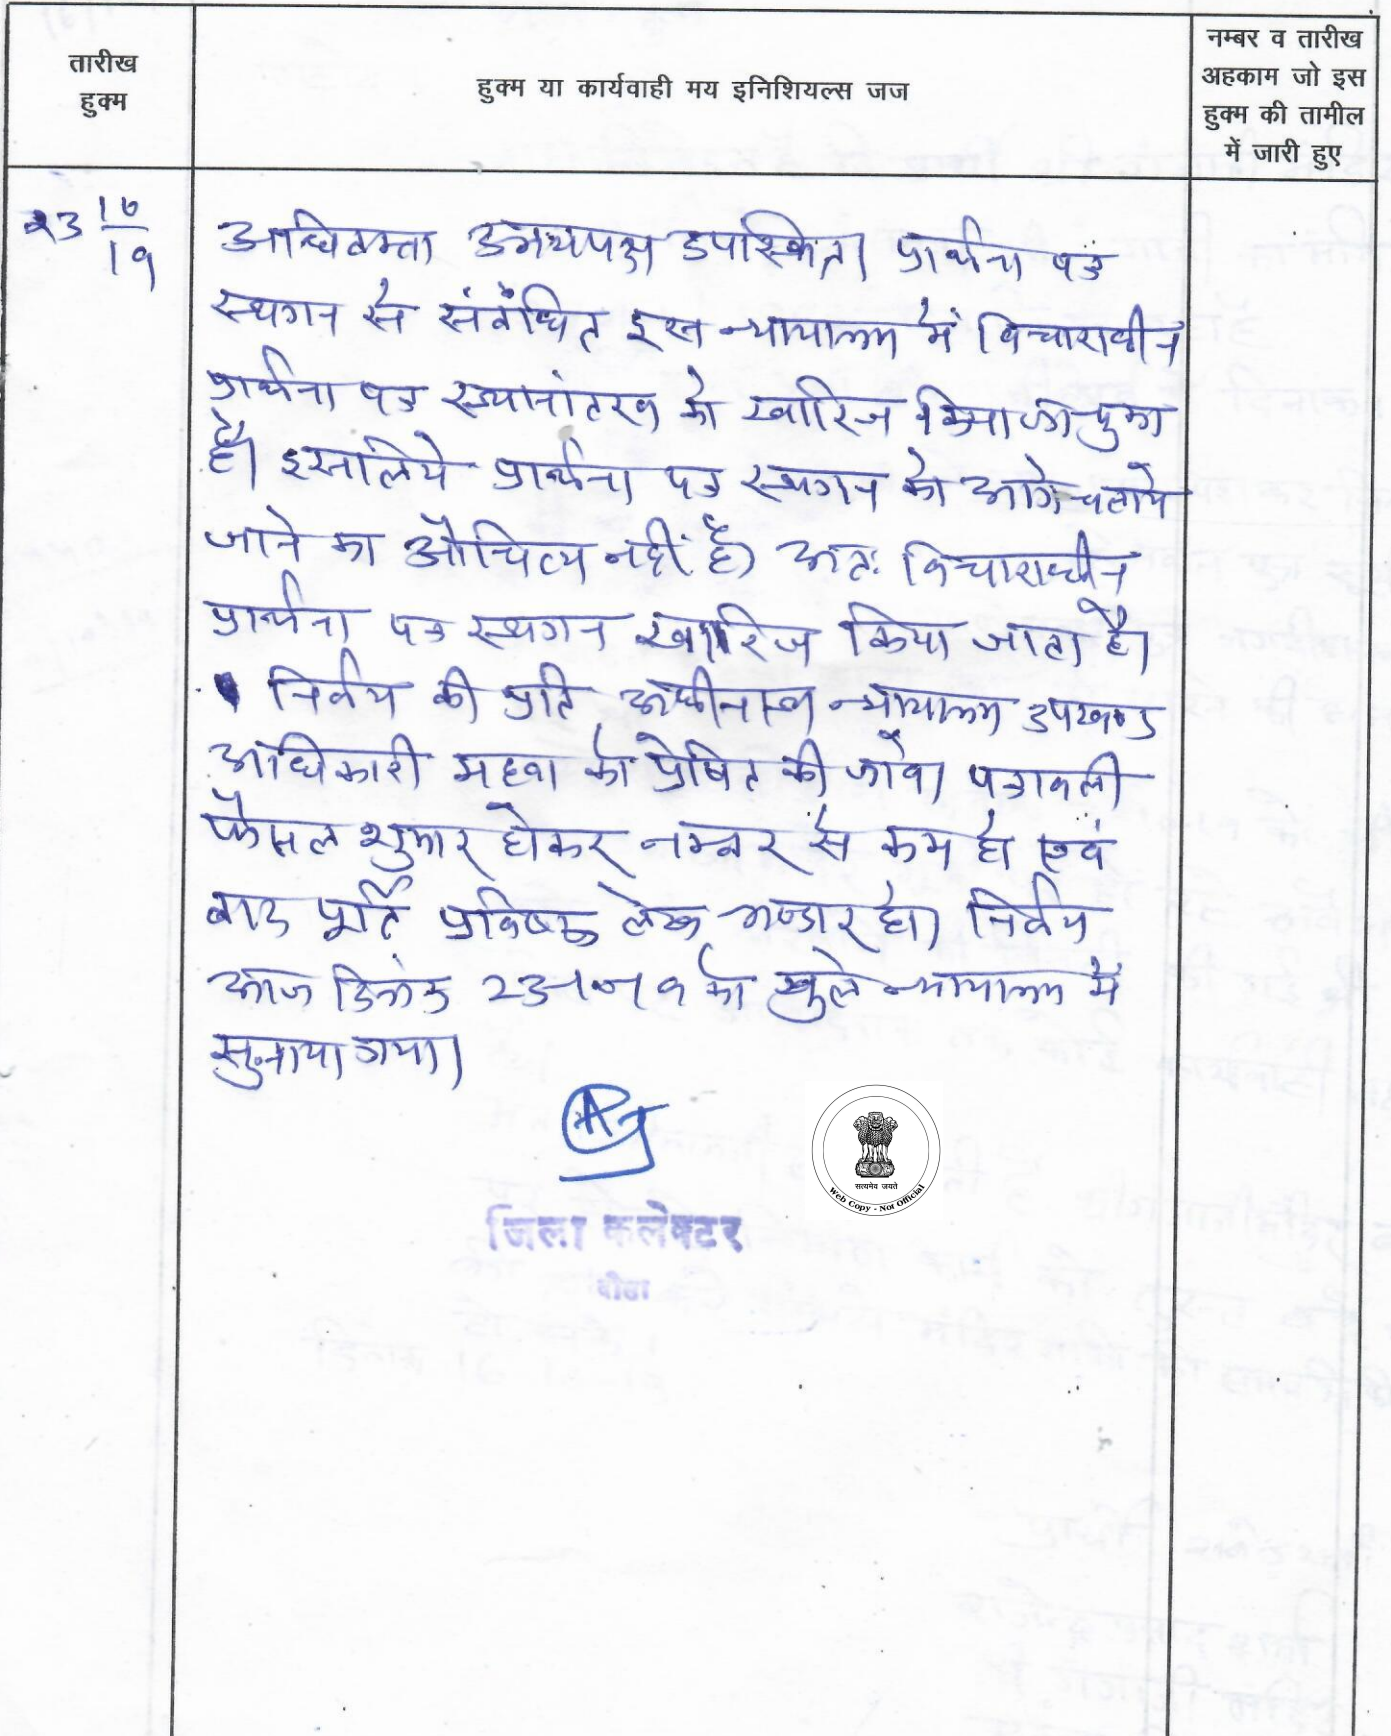 तारीख
हुक्म
हुक्म या कार्यवाही मय इनिशियल्स जज
नम्बर व तारीख
अहकाम जो इस
हुक्म की तामील
में जारी हुए
23 10/19
अधिवक्ता उभयपक्ष उपस्थित। प्रार्थना पत्र
स्थगन से संबंधित इस न्यायालय में विचाराधीन
प्रार्थना पत्र स्थानांतरण को खारिज किया जा चुका
है। इसलिये प्रार्थना पत्र स्थगन को आगे चलाये
जाने का औचित्य नहीं है। अतः विचाराधीन
प्रार्थना पत्र स्थगन खारिज किया जाता है।
निर्णय की प्रति अधीनस्थ न्यायालय उपखण्ड
अधिकारी महवा को प्रेषित की जावे। पत्रावली
फैसल शुमार होकर नम्बर से कम हो एवं
बाद पूर्ति प्रविष्ठ लेख भण्डार हो। निर्णय
आज दिनांक को खुले न्यायालय में
सुनाया गया।
जिला कलेक्टर
दौसा
सत्यमेव जयते
Web Copy - Not Official